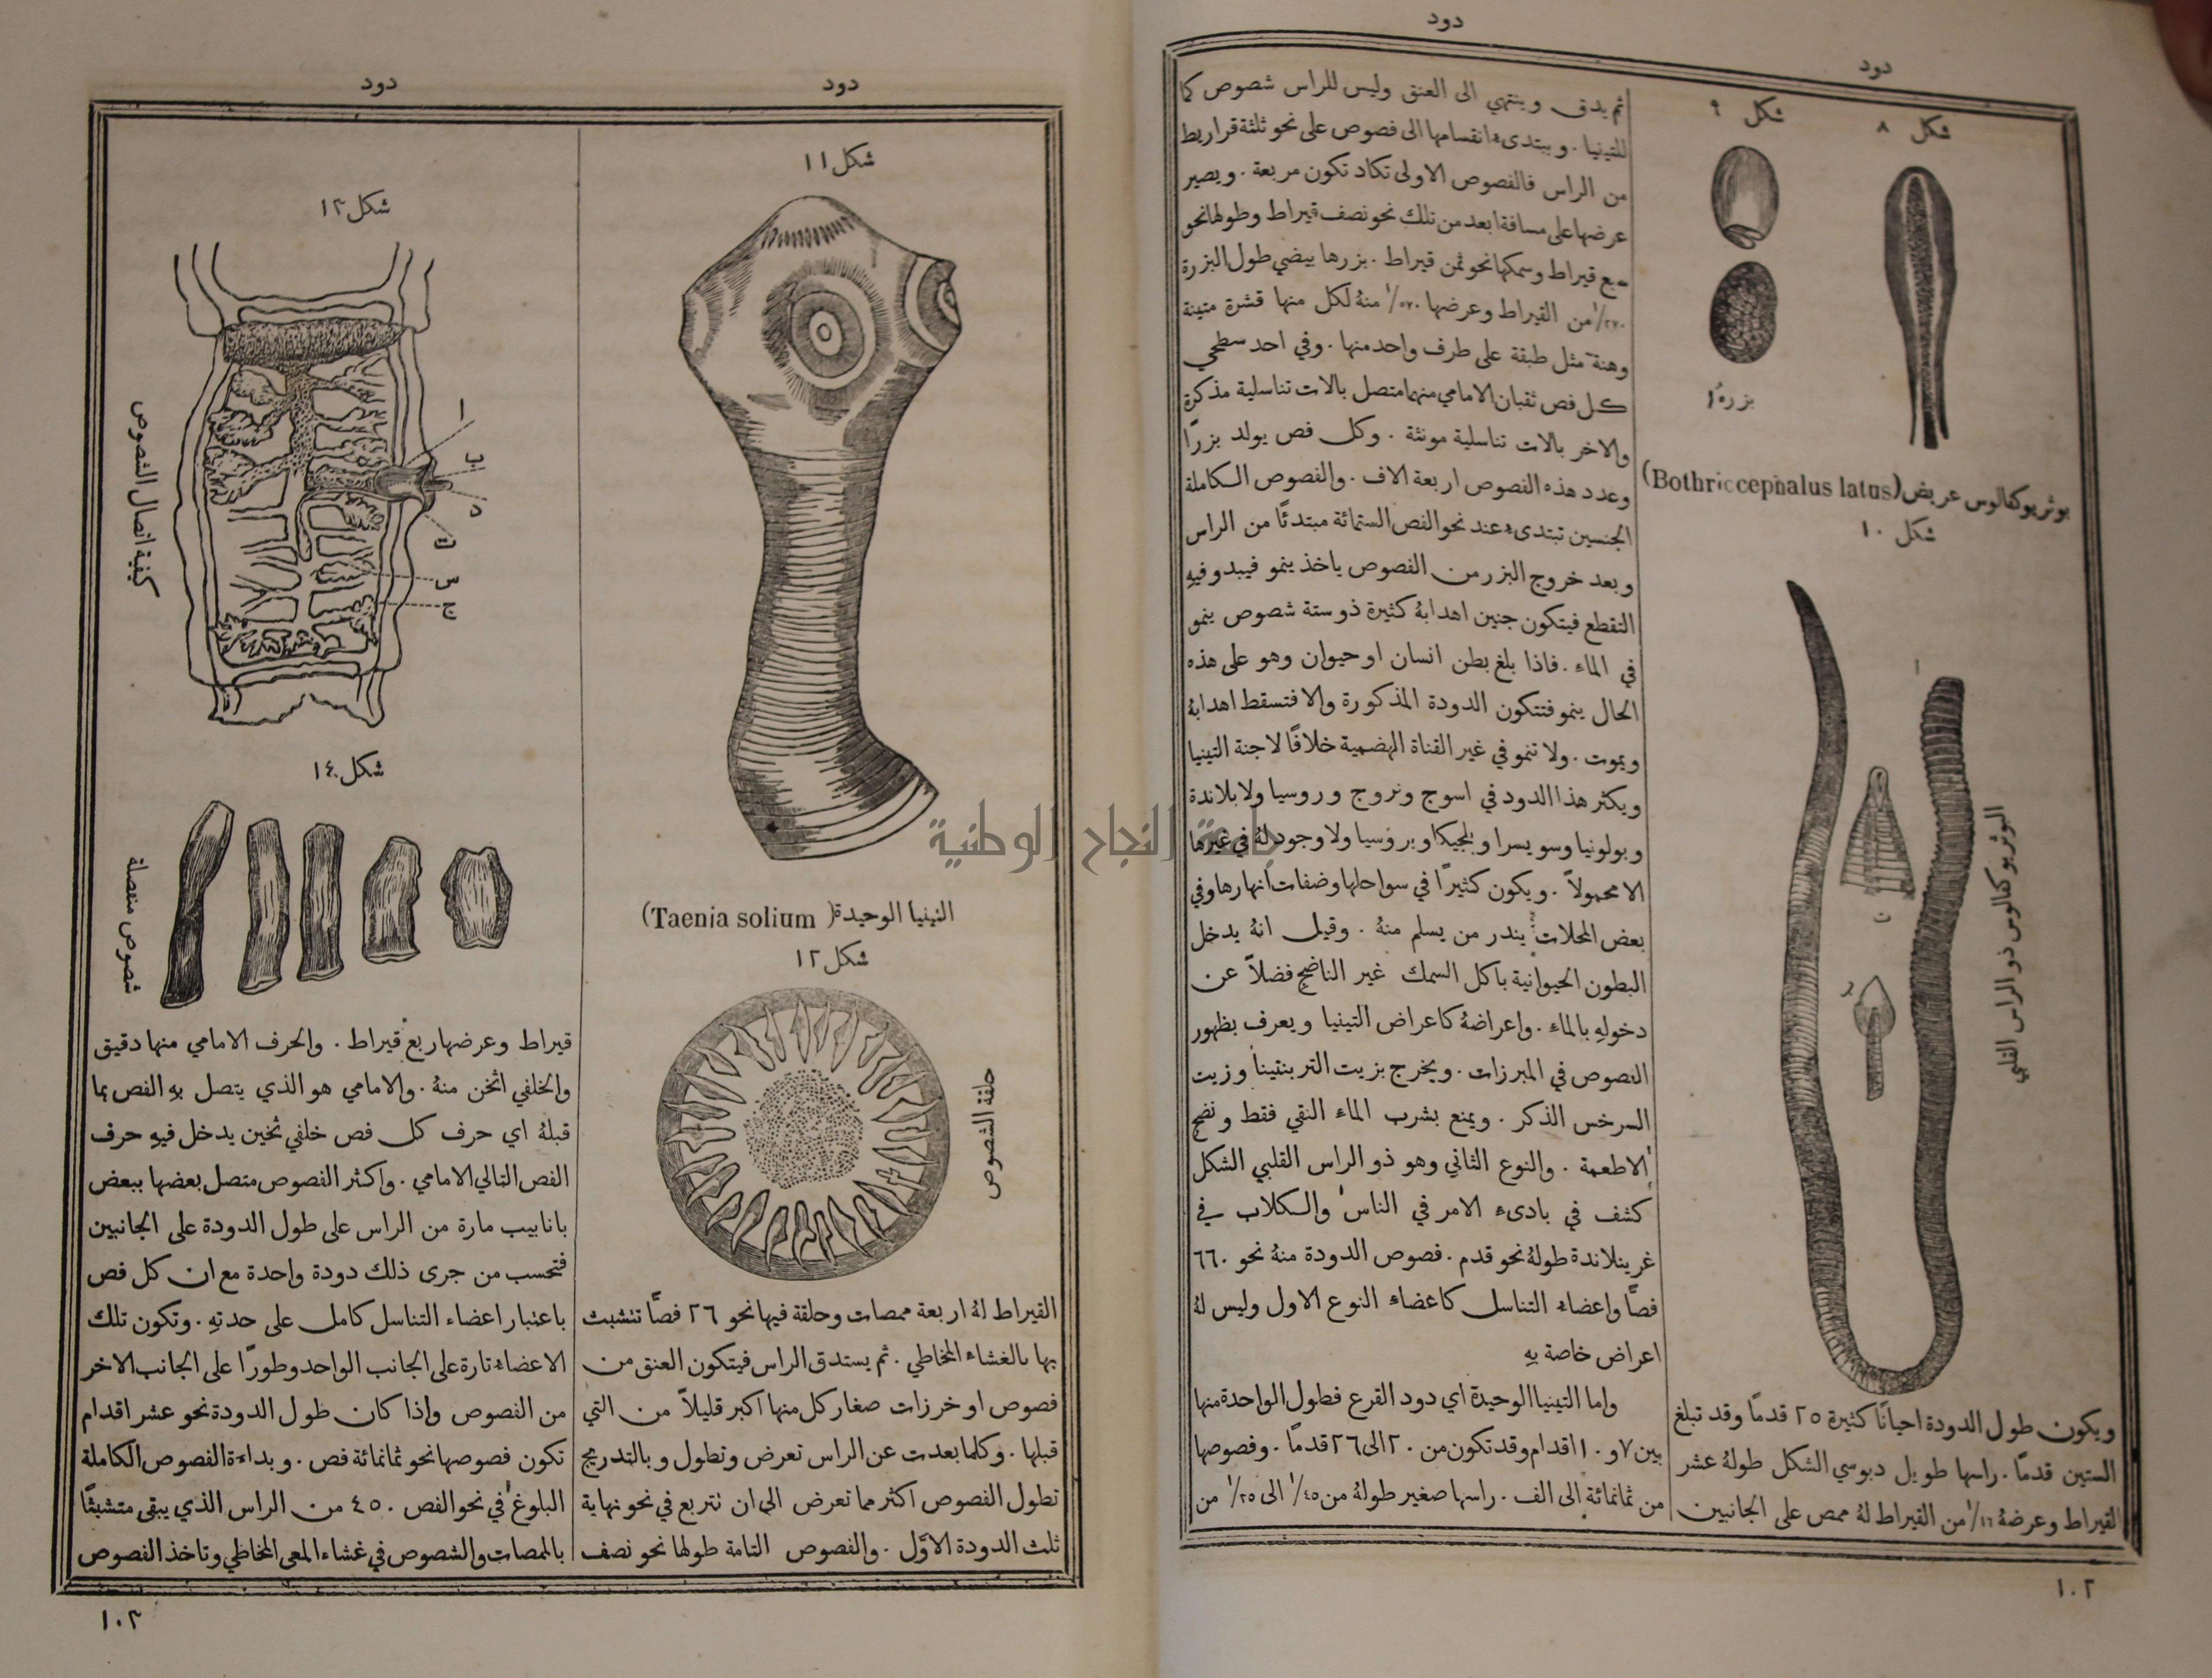 دود
دود
شكل ٨
شكل ٩
بزرهُ
بوثريوكفالوس عريض (Bothriccephalus latus)
شكل ١٠
ا
ت
البوثريوكفالوس ذو الراس القلبي
ويكون طول الدودة احيانًا كثيرة ٢٥ قدمًا وقد تبلغ
الستين قدمًا . راسها طويل دبوسي الشكل طولهُ عشر
القيراط وعرضهُ ١/١٦ من القيراط لهُ ممص على الجانبين
ثم يدق وينتهي الى العنق وليس للراس شصوص كما
للتينيا . ويبتدىء انقسامها الى فصوص على نحو ثلثة قراريط
من الراس فالفصوص الاولى تكاد تكون مربعة . ويصير
عرضها على مسافة ابعد من تلك نحو نصف قيراط وطولها نحو
ربع قيراط وسمكها نحو ثمن قيراط . بزرها بيضي طول البزرة
١/٢٧٠ من القيراط وعرضها ١/٥٧٠ منهُ لكل منها قشرة متينة
وهنة مثل طبقة على طرف واحد منها . وفي احد سطحي
كل فص ثقبان الامامي منهما متصل بالات تناسلية مذكرة
والاخر بالات تناسلية مونثة . وكل فص يولد بزرًا
وعدد هذه الفصوص اربعة الاف . والفصوص الكاملة
الجنسين تبتدىء عند نحو الفص الستمائة مبتدئًا من الراس
وبعد خروج البزر من الفصوص ياخذ ينمو فيبدو فيهِ
التقطع فيتكون جنين اهدابهُ كثيرة ذو ستة شصوص ينمو
في الماء . فاذا بلغ بطن انسان او حيوان وهو على هذه
الحال ينمو فتتكون الدودة المذكورة والا فتسقط اهدابهُ
ويموت . ولا تنمو في غير القناة الهضمية خلافًا لاجنة التينيا
ويكثر هذا الدود في اسوج ونروج وروسيا ولابلاندة
وبولونيا وسويسرا وبلجيكا وبروسيا ولا وجود لهُ في غيرها
الا محمولاً . ويكون كثيرًا في سواحلها وضفات انهارها وفي
بعض المحلات يندر من يسلم منهُ . وقيل انهُ يدخل
البطون الحيوانية باكل السمك غير الناضج فضلاً عن
دخولهِ بالماء . واعراضهُ كاعراض التينيا ويعرف بظهور
الفصوص في المبرزات . ويخرج بزيت التربنتينا وزيت
السرخس الذكر . ويمنع بشرب الماء النقي فقط ونضج
الاطعمة . والنوع الثاني وهو ذو الراس القلبي الشكل
كشف في بادىء الامر في الناس والكلاب في
غرينلاندة طولهُ نحو قدم . فصوص الدودة منهُ نحو ٦٦٠
فصًّا واعضاء التناسل كاعضاء النوع الاول وليس لهُ
اعراض خاصة بهِ
واما التينيا الوحيدة اي دود القرع فطول الواحدة منها
بين ٧ و ١٠ اقدام وقد تكون من ٢٠ الى ٢٦ قدمًا . وفصوصها
من ثمانمائة الى الف . راسها صغير طولهُ من ١/٤٥ الى ١/٢٥ من
١٠٢
دود
دود
شكل ١١
التينيا الوحيدة (Taenia solium)
شكل ١٢
حلقة الشصوص
القيراط لهُ اربعة ممصات وحلقة فيها نحو ٢٦ فصًّا تتشبث
بها بالغشاء المخاطي . ثم يستدق الراس فيتكون العنق من
فصوص او خرزات صغار كل منها اكبر قليلاً من التي
قبلها . وكلما بعدت عن الراس تعرض وتطول وبالتدريج
تطول الفصوص اكثر مما تعرض الى ان تتربع في نحو نهاية
ثلث الدودة الاوَّل . والفصوص التامة طولها نحو نصف
شكل ١٣
ا
ب
د
ث
س
ج
كيفية اتصال الشصوص
شكل ١٤
شصوص منفصلة
قيراط وعرضها ربع قيراط . والحرف الامامي منها دقيق
والخلفي اثخن منهُ . والامامي هو الذي يتصل بهِ الفص بما
قبلهُ اي حرف كل فص خلفي ثخين يدخل فيهِ حرف
الفص التالي الامامي . واكثر الفصوص متصل بعضها ببعض
بانابيب مارة من الراس على طول الدودة على الجانبين
فتحسب من جرى ذلك دودة واحدة مع ان كل فص
باعتبار اعضاء التناسل كامل على حدتهِ . وتكون تلك
الاعضاء تارة على الجانب الواحد وطورًا على الجانب الاخر
من الفصوص واذا كان طول الدودة نحو عشر اقدام
تكون فصوصها نحو ثمانمائة فص . وبداءة الفصوص الكاملة
البلوغ في نحو الفص ٤٥٠ من الراس الذي يبقى متشبثًا
بالممصات والشصوص في غشاء المعى المخاطي وتاخذ الفصوص
١٠٣
جامعة النجاح الوطنية